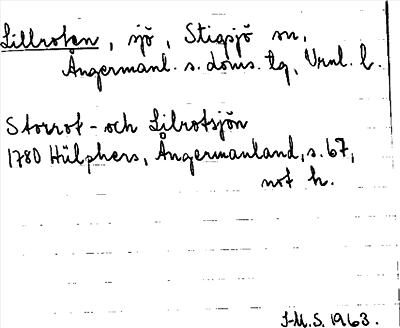 Lillroten, sjö, Stigsjö sn,
Ångermanl. s. doms. tg, Vrnl. l.
Storrot- och Lilrotsjön
1780 Hülphers, Ångermanland, s. 67,
not h.
I-M.S. 1963.